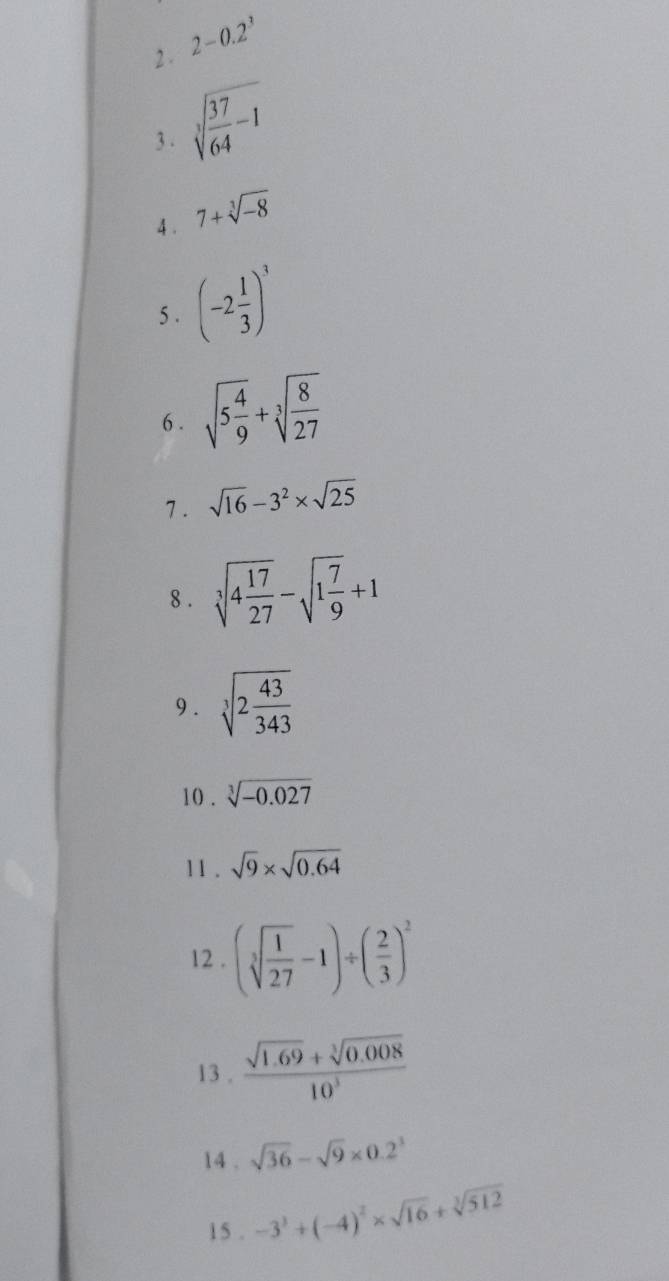 2 . 2 − 0.2³
3 . ∛(37/64 − 1)
4 . 7 + ∛−8
5 . (−2 1/3)³
6 . √(5 4/9) + ∛(8/27)
7 . √16 − 3² × √25
8 . ∛(4 17/27) − √(1 7/9) + 1
9 . ∛(2 43/343)
10 . ∛−0.027
11 . √9 × √0.64
12 . (∛(1/27) − 1) ÷ (2/3)²
13 . (√1.69 + ∛0.008)/10³
14 . √36 − √9 × 0.2³
15 . −3³ + (−4)² × √16 + ∛512